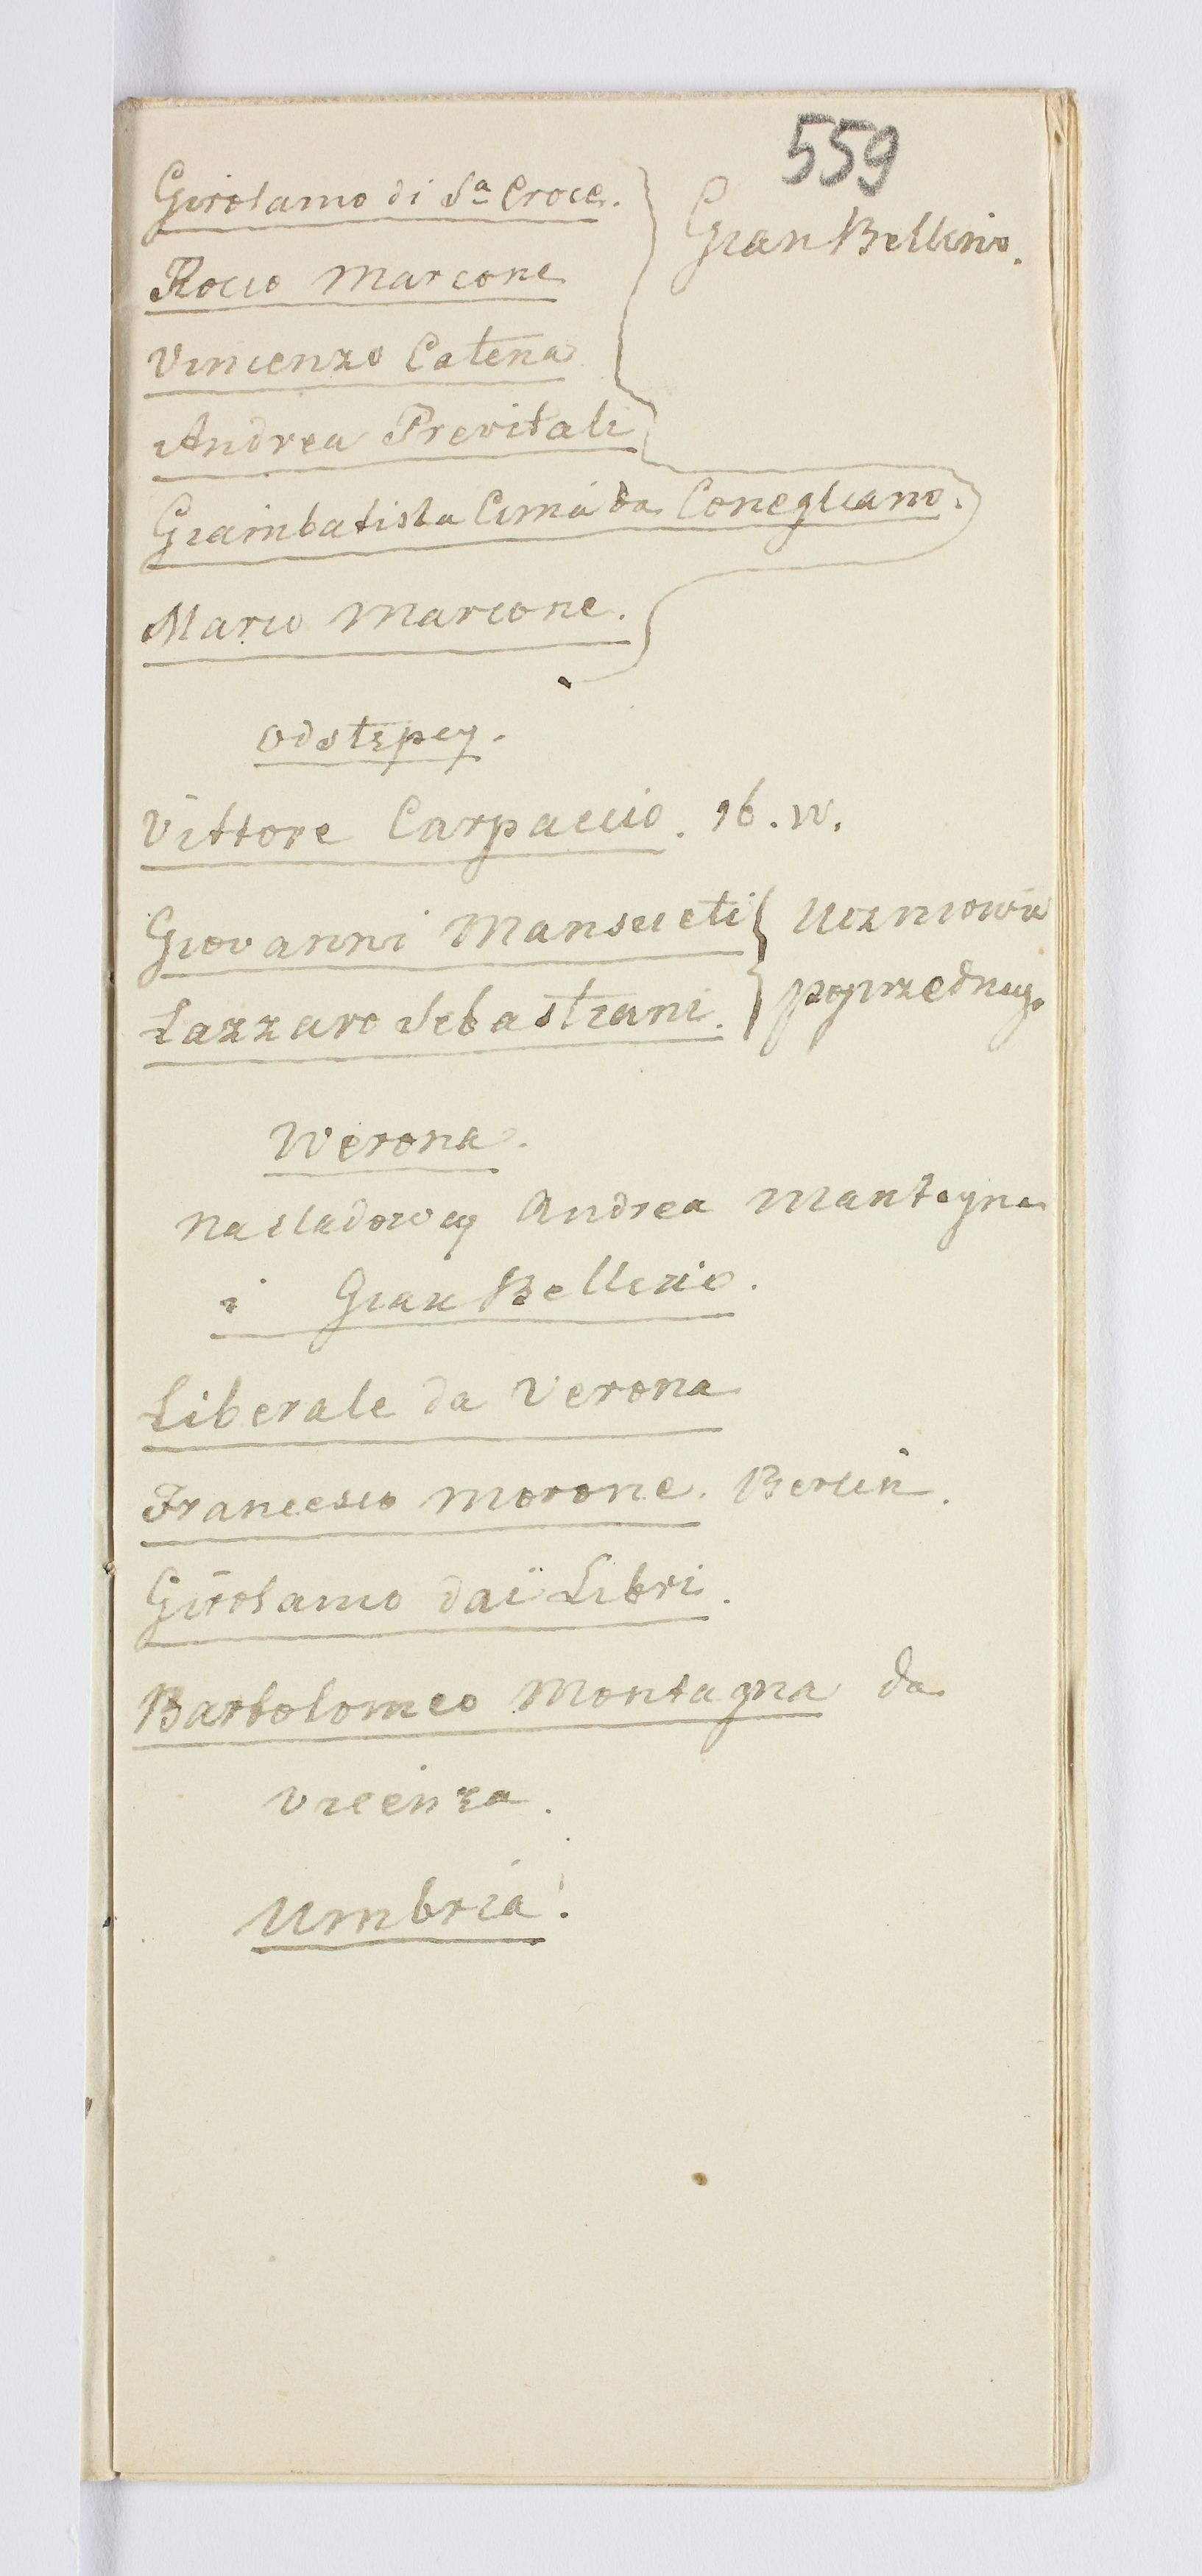 559
Girolamo di Sª Croce.
Gian Bellino.
Rocco Marcone
Vincenzo Catena
Andrea Previtali
Giambatista Cima da Conegliano.
Marco Marcone.
odstępcy.
Vittore Carpaccio. 16. w.
Giovanni Mansueti
Lazzaro Sebastiani.
Uczniowie
poprzednieg.
Werona.
Naśladowcy Andrea Mantegna
i Gian Bellinio.
Liberale da Verona
Francesco Morone. Berlin.
Girolamo dai Libri.
Bartolomeo Montagna da
Vicenza.
Umbria.